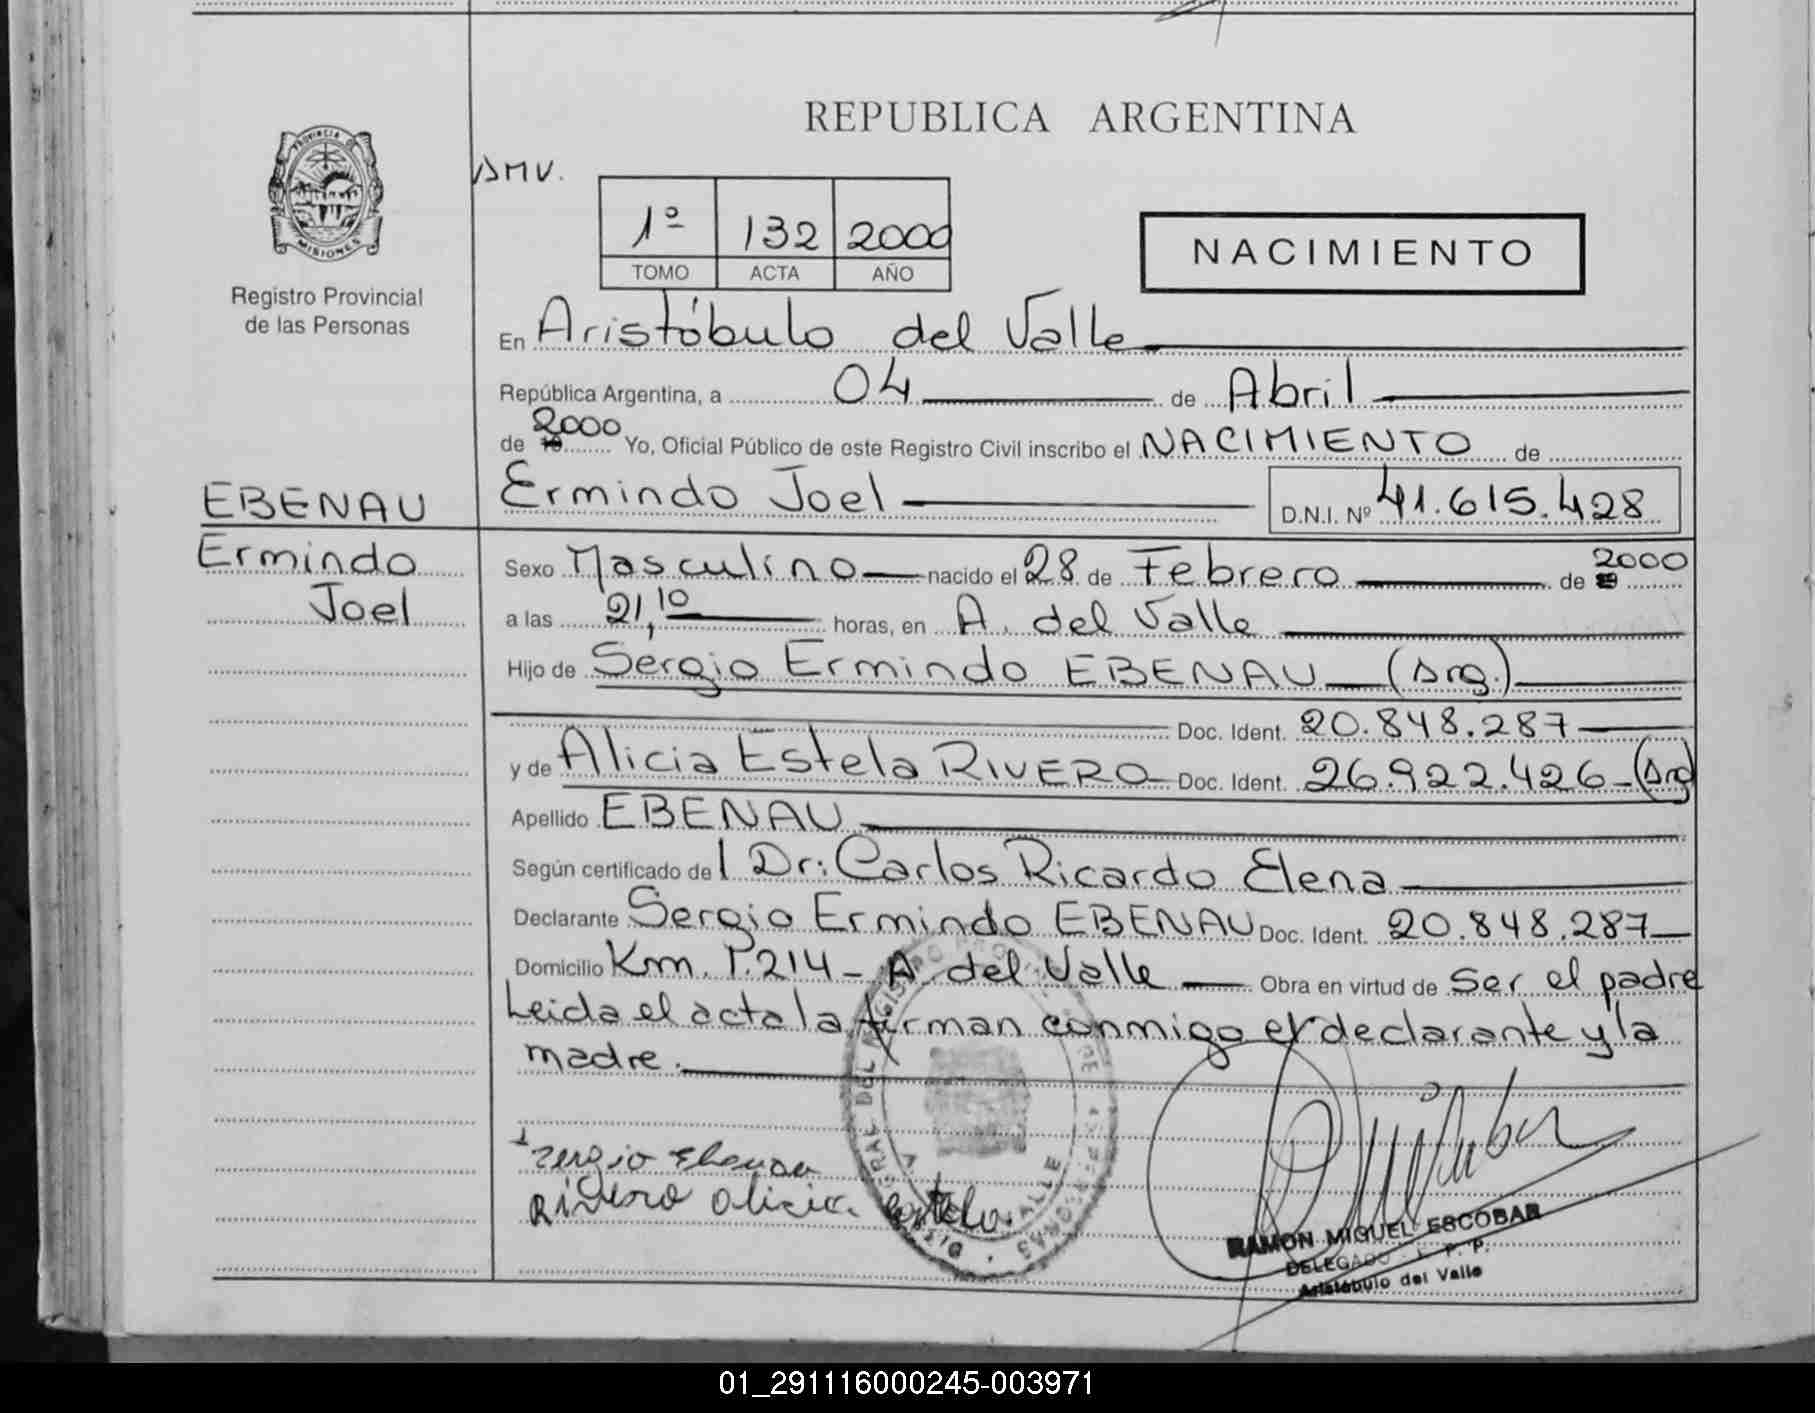 REPUBLICA ARGENTINA
PROVINCIA DE
MISIONES
Registro Provincial
de las Personas
AMV.
1º 132 2000
TOMO ACTA AÑO
NACIMIENTO
En Aristóbulo del Valle
República Argentina, a 04 de Abril
de 2000 Yo, Oficial Público de este Registro Civil inscribo el NACIMIENTO de
Ermindo Joel D.N.I. Nº 41.615.428
EBENAU
Ermindo
Joel
Sexo Masculino nacido el 28 de Febrero de 2000
a las 21,10 horas, en A. del Valle
Hijo de Sergio Ermindo EBENAU (Arg.)
Doc. Ident. 20.848.287
y de Alicia Estela RIVERO Doc. Ident. 26.922.426 (Arg)
Apellido EBENAU
Según certificado del Dr: Carlos Ricardo Elena
Declarante Sergio Ermindo EBENAU Doc. Ident. 20.848.287
Domicilio Km. P.214 - A. del Valle Obra en virtud de Ser el padre
Leida el acta la firman conmigo el declarante y la
madre.
Sergio Ebenau
Rivero Alicia Estela
RAMON MIGUEL ESCOBAR
DELEGADO R. P. P.
Aristóbulo del Valle
01_291116000245-003971